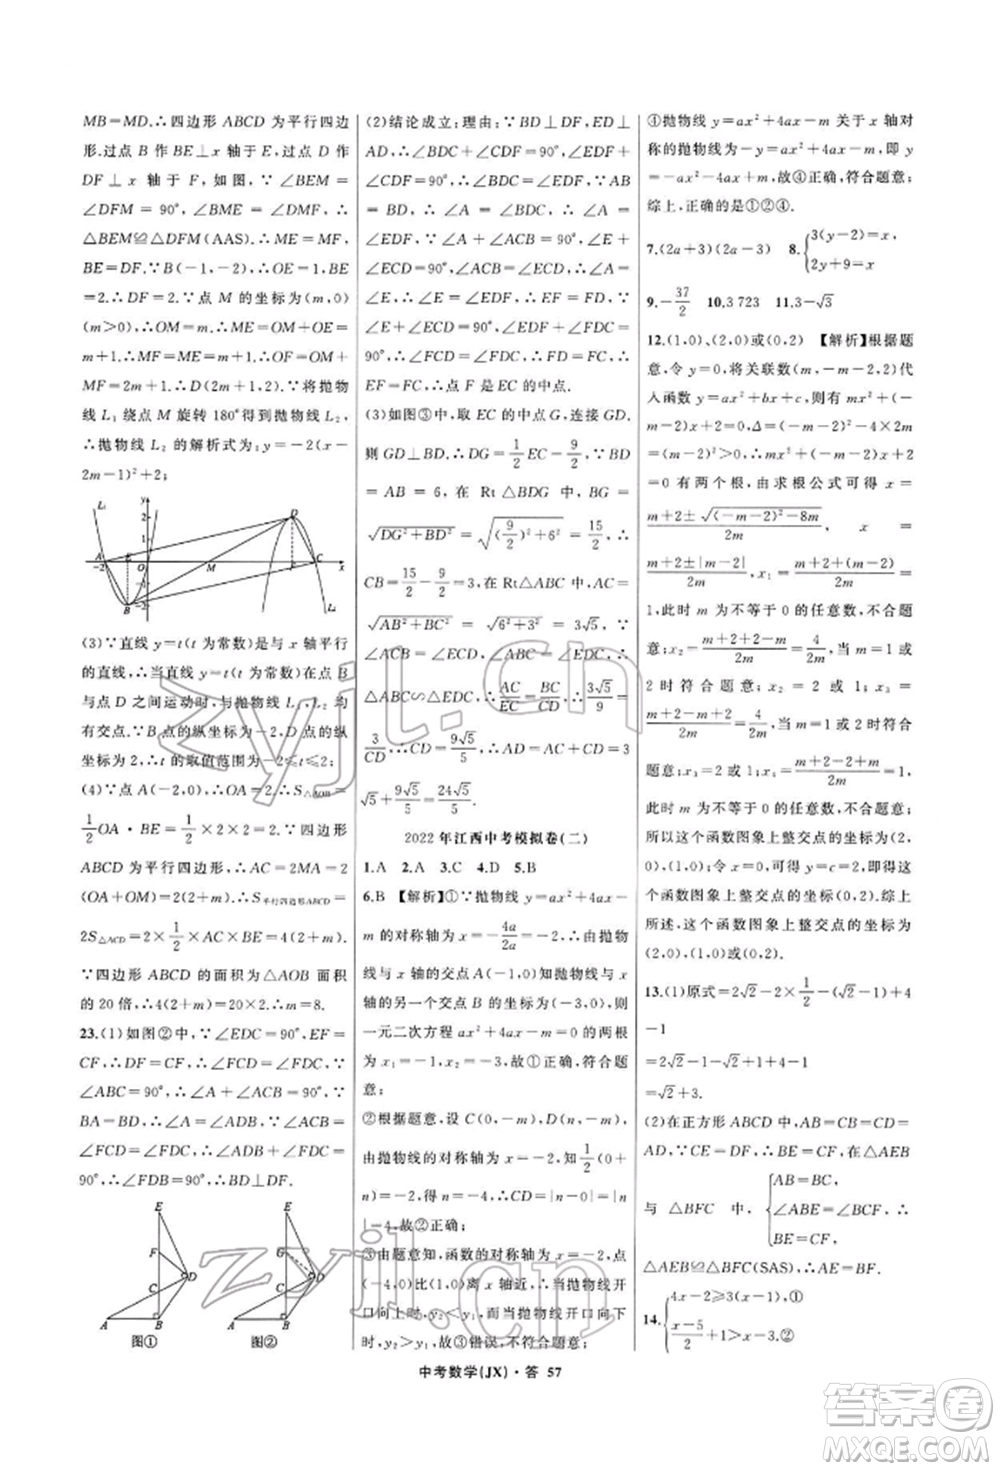 MB=MD.∴四边形 ABCD 为平行四边
形.过点 B 作 BE⊥x 轴于 E,过点 D 作
DF⊥x 轴于 F,如图,∵∠BEM=
∠DFM=90°,∠BME=∠DMF,∴
△BEM≌△DFM(AAS).∴ME=MF,
BE=DF.∵B(-1,-2),∴OE=1,BE
=2.∴DF=2.∵点 M 的坐标为(m,0)
(m>0),∴OM=m.∴ME=OM+OE=
m+1.∴MF=ME=m+1.∴OF=OM+
MF=2m+1.∴D(2m+1,2).∵将抛物
线 L₁ 绕点 M 旋转 180°得到抛物线 L₂,
∴抛物线 L₂ 的解析式为:y=-2(x-
2m-1)²+2;
L₁ y D 2 1 A E -2 O M F C x -1 B -2 L₂
(3)∵直线 y=t(t 为常数)是与 x 轴平行
的直线,∴当直线 y=t(t 为常数)在点 B
与点 D 之间运动时,与抛物线 L₁,L₂ 均
有交点.∵B 点的纵坐标为-2,D 点的纵
坐标为 2,∴t 的取值范围为-2≤t≤2;
(4)∵点 A 坐标为(-2,0),∴OA=2.∴S△AOB=
1/2 OA·BE=1/2×2×2=2.∵四边形
ABCD 为平行四边形,∴AC=2MA=2
(OA+OM)=2(2+m).∴S平行四边形ABCD=
2S△ACD=2×1/2×AC×BE=4(2+m).
∵四边形 ABCD 的面积为△AOB 面积
的 20 倍,∴4(2+m)=20×2.∴m=8.
23.(1)如图②中,∵∠EDC=90°,EF=
CF,∴DF=CF.∴∠FCD=∠FDC.∵
∠ABC=90°,∴∠A+∠ACB=90°.∵
BA=BD,∴∠A=∠BDA.∵∠ACB=
∠FCD=∠FDC,∴∠BDA+∠FDC=
90°.∴∠FDB=90°.∴BD⊥DF.
E F D C A B 图①
E G D C A B 图②
(2)结论成立;理由:∵BD⊥DF,ED⊥
AD,∴∠BDC+∠CDF=90°,∠EDF
+∠CDF=90°.∴∠BDC=∠EDF.∵AB
=BD,∴∠A=∠BDC.∴∠A=
∠EDF.∵∠A+∠ACB=90°,∠E+
∠ECD=90°,∠ACB=∠ECD,∴∠A
=∠E.∴∠E=∠EDF.∴EF=FD.∵
∠E+∠ECD=90°,∠EDF+∠FDC=
90°,∴∠FCD=∠FDC.∴FD=FC.∴
EF=FC.∴点 F 是 EC 的中点.
(3)如图③中,取 EC 的中点 G,连接 GD.
则 GD⊥BD.∴DG=1/2 EC=9/2.∵BD
=AB=6,在 Rt△BDG 中,BG=
√(DG²+BD²)=√((9/2)²+6²)=15/2.∴
CB=15/2-9/2=3,在 Rt△ABC 中,AC=
√(AB²+BC²)=√(6²+3²)=3√5.∵
∠ACB=∠ECD,∠ABC=∠EDC,∴
△ABC∽△EDC.∴AC/EC=BC/CD.∴3√5/9=
3/CD.∴CD=9√5/5.∴AD=AC+CD=3
√5+9√5/5=24√5/5.
2022 年江西中考模拟卷(二)
1.A 2.A 3.C 4.D 5.B
6.B 【解析】①∵抛物线 y=ax²+4ax-
m 的对称轴为 x=-4a/2a=-2,∴由抛物
线与 x 轴的交点 A(-1,0)知抛物线与 x
轴的另一个交点 B 的坐标为(-3,0),则
一元二次方程 ax²+4ax-m=0 的两根
为 x₁=-1,x₂=-3,故①正确,符合题
意;
②根据题意,设 C(0,-m),D(n,-m),
由抛物线的对称轴为 x=-2,知1/2(0+
n)=-2,得 n=-4,则 CD=|n-0|=|n
|=4,故②正确;
③由题意知,函数的对称轴为 x=-2,点
(-4,0)比(1,0)离 x 轴近,当抛物线开
口向上时,y₂>y₁,而当抛物线开口向下
时,y₂<y₁,故③错误,不符合题意;
④抛物线 y=ax²+4ax-m 关于 x 轴对
称的抛物线为-y=ax²+4ax-m,即 y
=-ax²-4ax+m,故④正确,符合题意;
综上,正确的是①②④.
7.(2a+3)(2a-3) 8.{3(y-2)=x,
2y+9=x
9.-37/2 10.3 723 11.3-√3
12.(1,0)、(2,0)或(0,2) 【解析】根据题
意,令 y=0,将关联数(m,-m-2,2)代
入函数 y=ax²+bx+c,则有 mx²+(-
m-2)x+2=0,Δ=(-m-2)²-4×2m=
(m-2)²>0,∴mx²+(-m-2)x+2=
0 有两个根,由求根公式可得 x =
(m+2±√((-m-2)²-8m))/2m, x =
(m+2±|m-2|)/2m,x₁=(m+2+(m-2))/2m=
1,此时 m 为不等于 0 的任意数,不合题
意;x₂=(m+2+2-m)/2m=4/2m,当 m=1 或
2 时符合题意;x₂=2 或 1;x₃=
(m+2-2+m)/2m=1,此时 m 为不等于 0 的任意数,不合题
意;x₄=(m+2-2+m)/2m
题意;x₂=2 或 1;
所以这个函数图象上整交点的坐标为(2,
0),(1,0);令 x=0,可得 y=c=2,即得
这个函数图象上整交点的坐标(0,2).综上
所述,这个函数图象上整交点的坐标为
(2,0),(1,0)或(0,2).
13.(1)原式=2√2-2×1/2-(√2-1)+4
-1
=2√2-1-√2+1+4-1
=√2+3.
(2)在正方形 ABCD 中,AB=BC=CD=
AD,∵CE=DF,∴BE=CF,在△AEB
与△BFC 中,{AB=BC,
∠ABE=∠BCF,∴
BE=CF,
△AEB≌△BFC(SAS).∴AE=BF.
14.{4x-2≥3(x-1),①
(x-5)/2+1>x-3.②
中考数学(JX)·答 57
zyjl.cn
zyjl.cn
答案圈
MXQE.COM